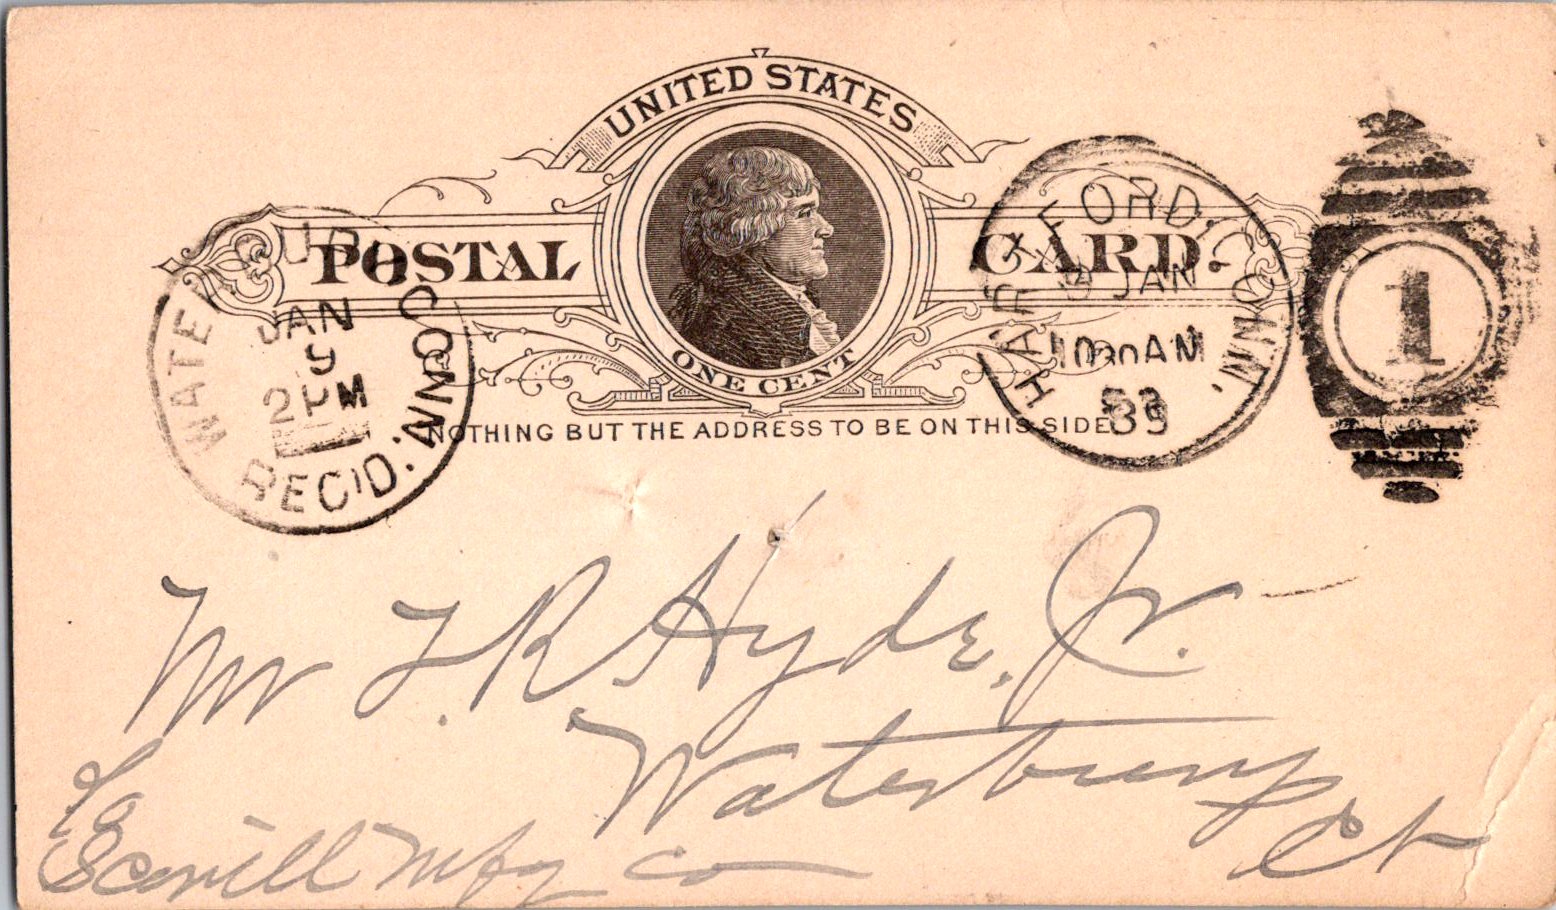 UNITED STATES
POSTAL CARD.
ONE CENT
NOTHING BUT THE ADDRESS TO BE ON THIS SIDE
WATERBURY CONN.
JAN
9
2 PM
REC'D.
HARTFORD. CONN.
9 JAN
10 30 AM
1
Mr T. R. Hyde, Jr.
Waterbury
Ct
Scovill Mfg Co